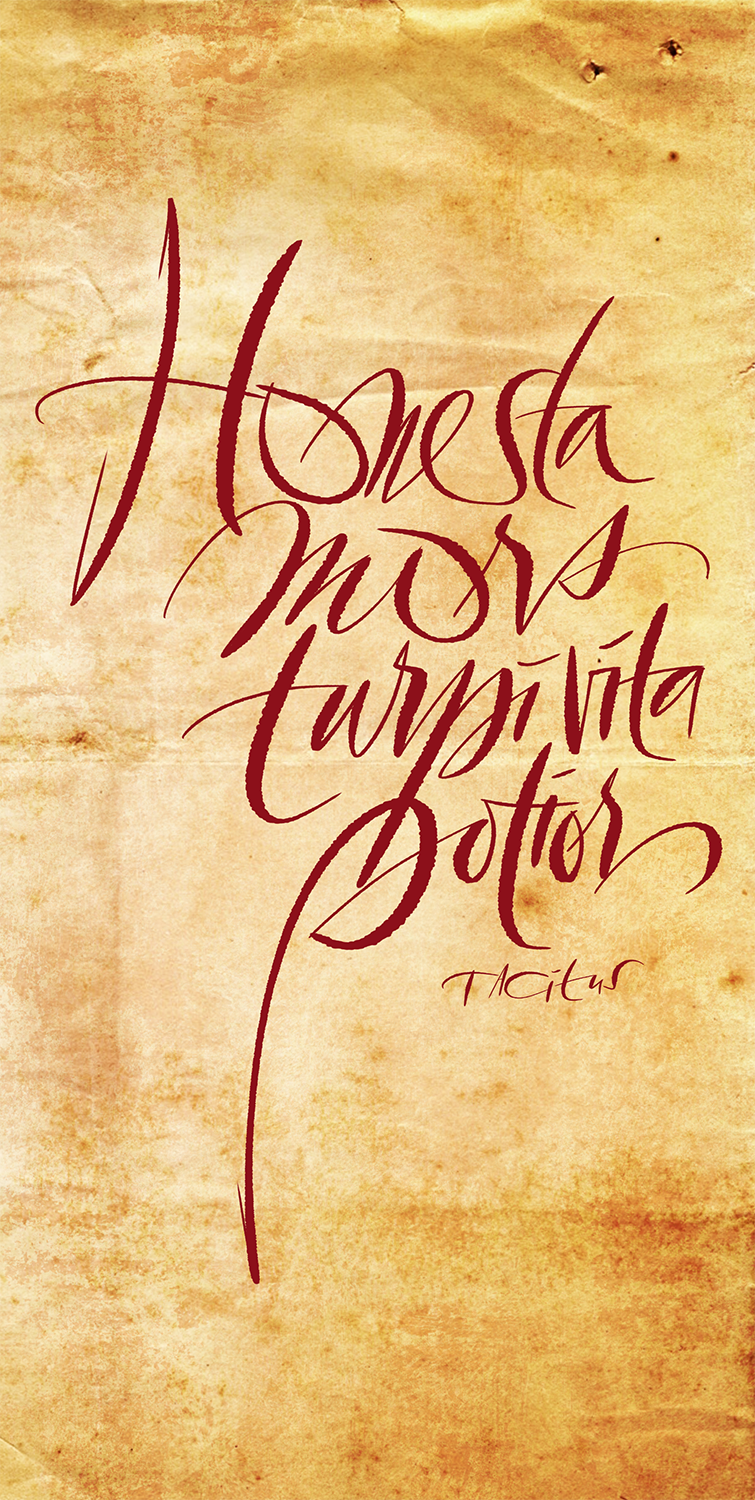 Honesta
mors
turpi vita
Potior
TACitus